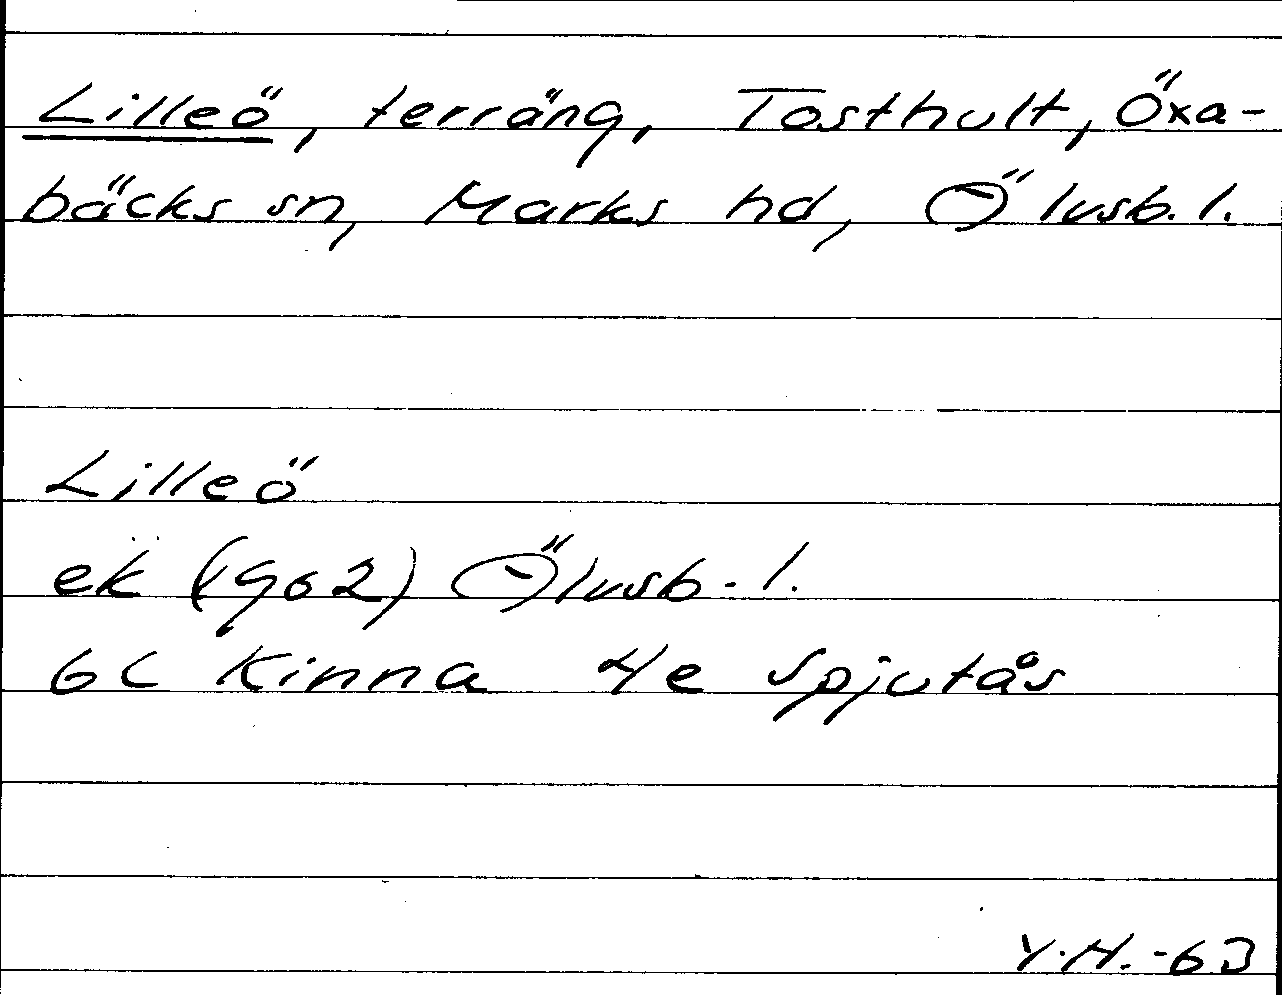 Lilleö, terräng, Tosthult, Öxa-
bäcks sn, Marks hd, Älvsb. l.
Lilleö
ek (1962) Älvsb. l.
6C Kinna 4e Spjutås
Y.H. -63